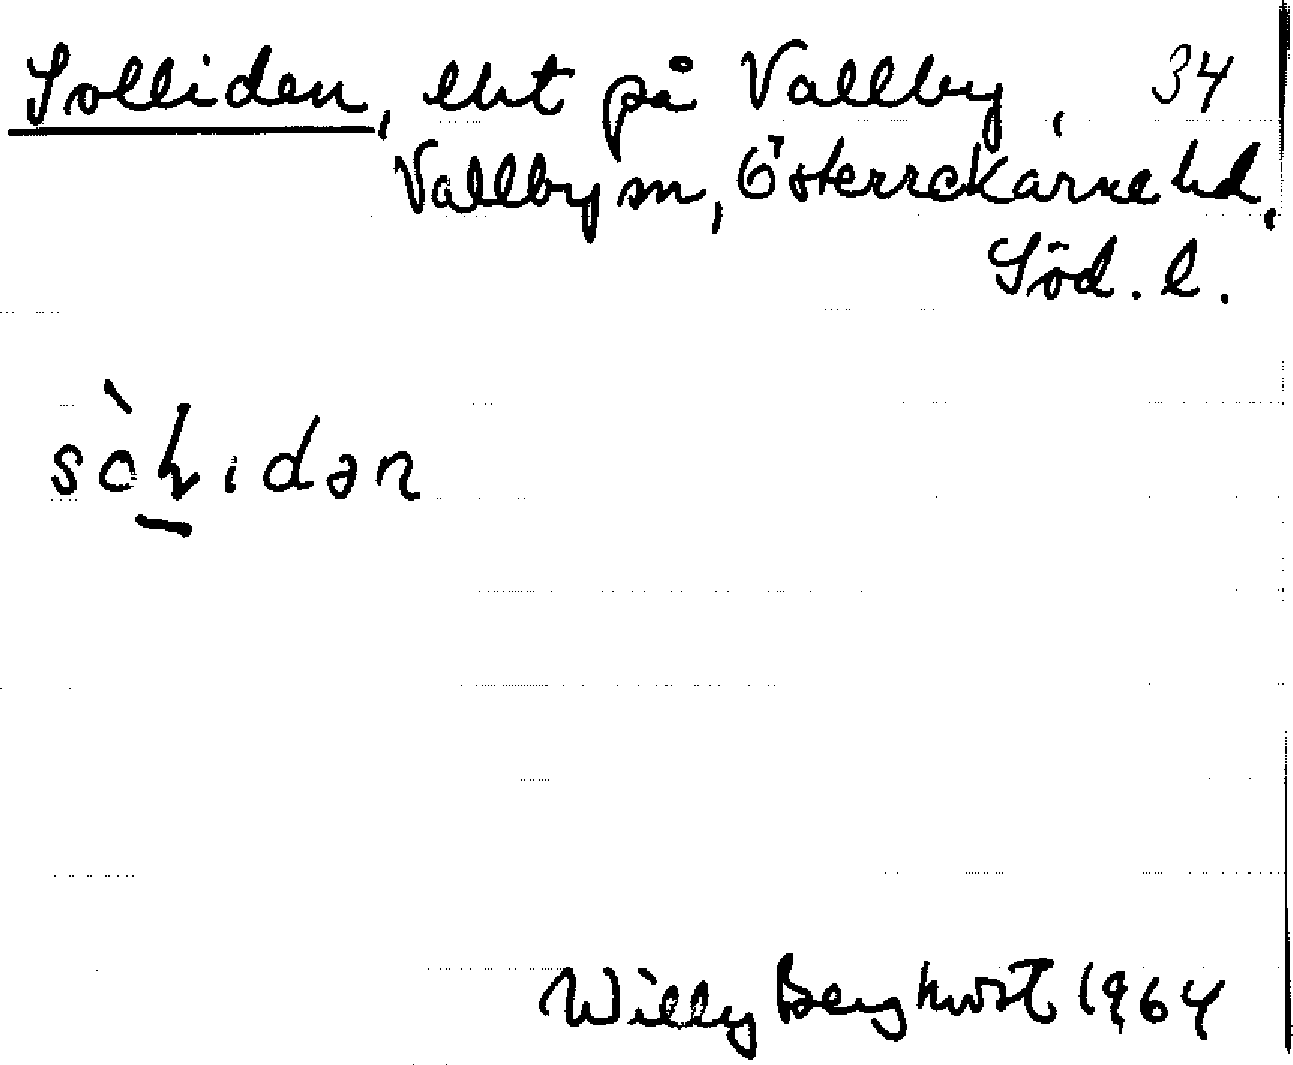 Solliden, lht på Vallby, 34
Vallby sn, Österrekarne hd,
Söd. l.
Willy Bergkvist 1964